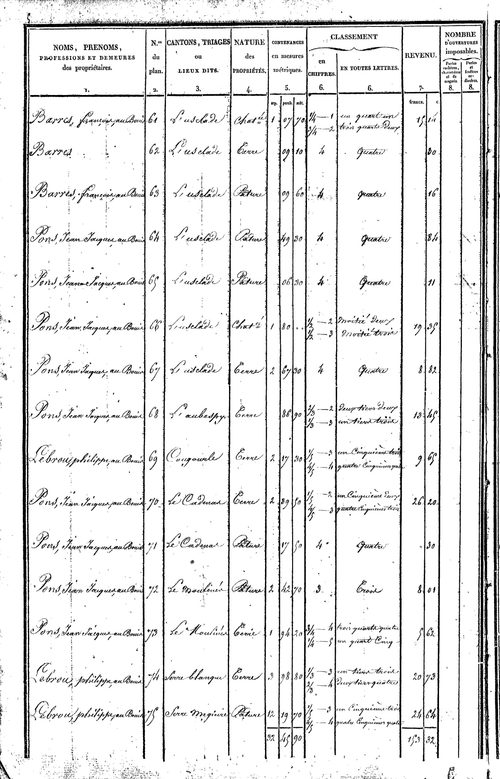 NOMS, PRENOMS, PROFESSIONS ET DEMEURES des propriétaires. N.os du plan. CANTONS, TRIAGES ou LIEUX DITS. NATURE des PROPRIÉTÉS. CONTENANCES en mesures métriques. CLASSEMENT en CHIFFRES. EN TOUTES LETTRES. REVENU. NOMBRE D'OUVERTURES imposables.
1. 2. 3. 4. 5. 6. 6. 7. 8. 8.
Barres, françois, au Bouis 61 L'usclade 1 07 70 1/4 — 1 un quart un 15 14
3/4 — 2 trois quarts deux
Barres 62 L'usclade Terre 09 10 4 Quatre 30
Barres, françois, au Bouis 63 L'usclade Pâture 09 60 4 Quatre 16
Pons, Jean Jacques, au Bouis 64 L'usclade Pâture 49 30 4 Quatre 84
Pons, Jean Jacques, au Bouis 65 L'usclade Pâture 06 30 4 Quatre 11
Pons, Jean Jacques, au Bouis 66 L'usclade 1 80 1/2 — 2 Moitié deux 19 35
1/2 — 3 Moitié trois
Pons, Jean Jacques, au Bouis 67 L'usclade Terre 2 67 30 4 Quatre 8 82
Pons, Jean Jacques, au Bouis 68 Terre 86 90 2/3 — 2 deux tiers deux 13 45
1/3 — 3 un tiers trois
Lebrou, philippe, au Bouis 69 Terre 2 17 30 1/5 — 3 un Cinquième trois 9 65
4/5 — 4 quatre Cinquièmes
Pons, Jean Jacques, au Bouis 70 Le Cadenas Terre 2 89 50 1/5 — 2 un Cinquième deux 26 20
4/5 — 3 quatre Cinquièmes trois
Pons, Jean Jacques, au Bouis 71 Le Cadenas Pâture 17 50 4 Quatre 30
Pons, Jean Jacques, au Bouis 72 Pâture 2 42 70 3 Trois 8 01
Pons, Jean Jacques, au Bouis 73 Terre 1 94 20 3/4 — 4 trois quarts quatre 5 62
1/4 — 5 un quart Cinq
Lebrou, philippe, au Bouis 74 Serre blanque Terre 3 98 80 1/3 — 3 un tiers trois 20 73
2/3 — 4 deux tiers quatre
Lebrou, philippe, au Bouis 75 Serre Pâture 12 19 70 1/5 — 3 un Cinquième trois 24 64
4/5 — 4 quatre Cinquièmes
32 45 90 153 32